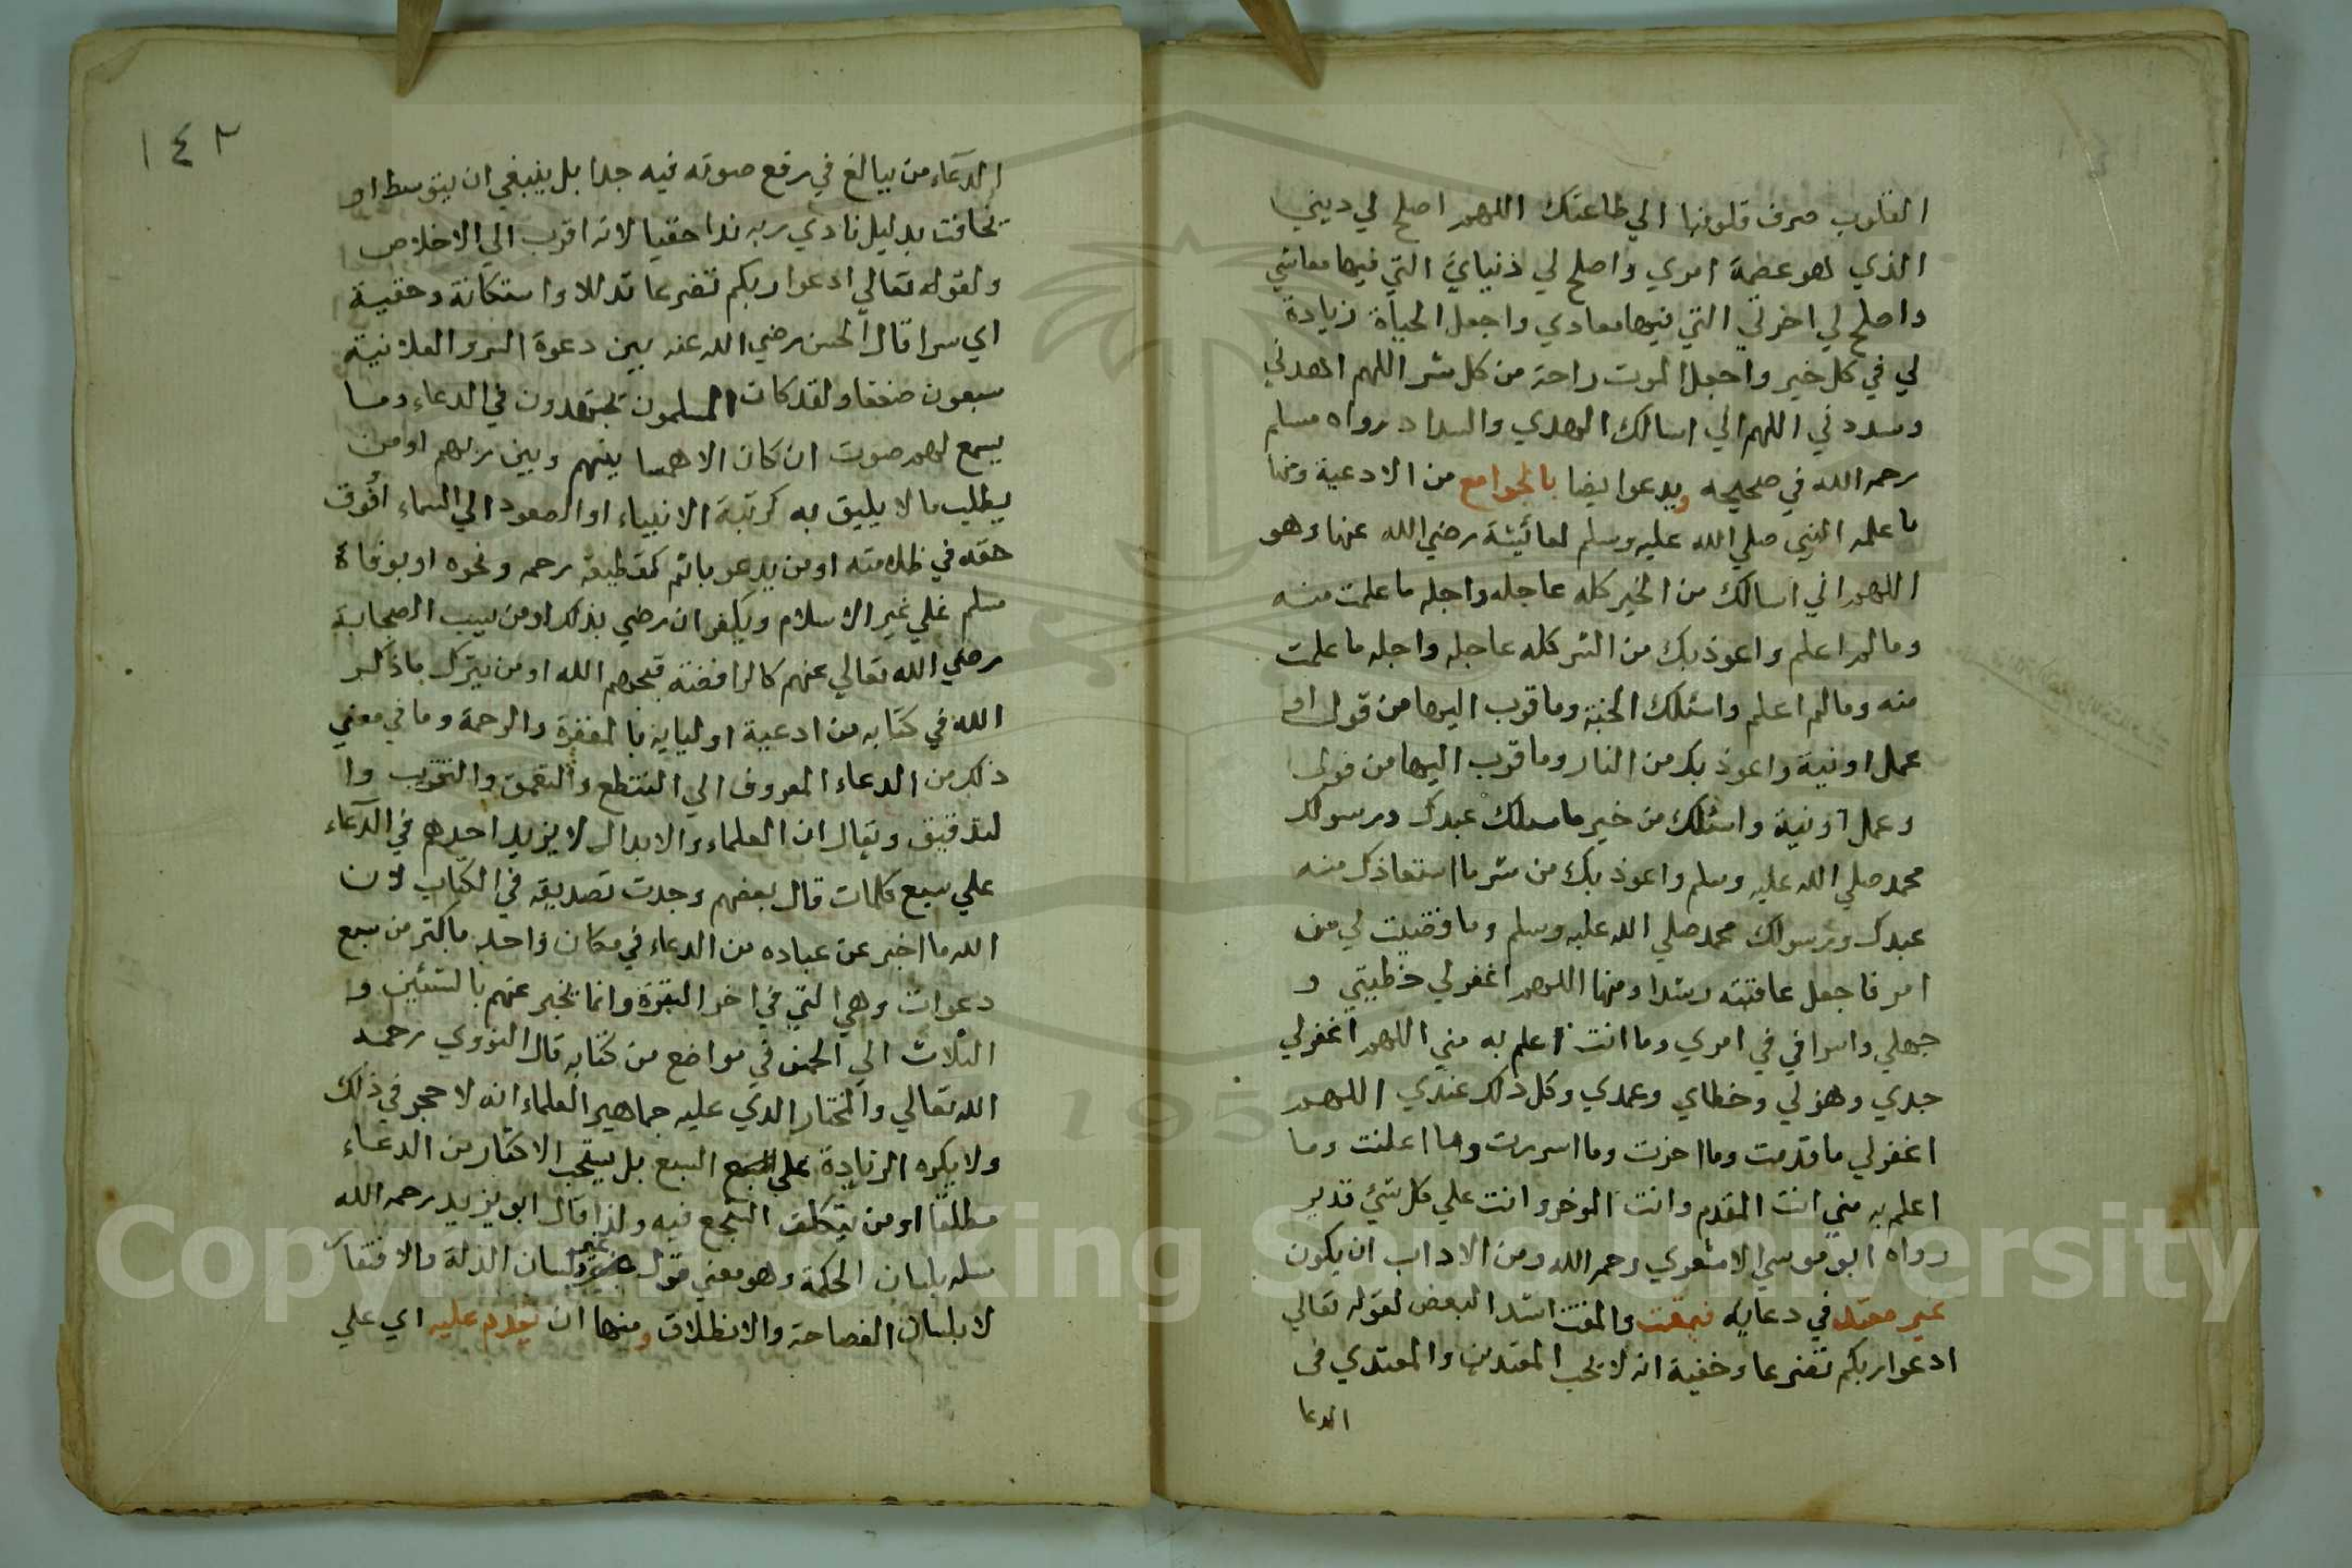 القلوب صرف قلوبنا الي طاعتك اللهم اصلح لي ديني
الذي هو عصمة امري واصلح لي دنياي التي فيها معاشي
واصلح لي اخرتي التي فيها معادي واجعل الحياة زيادة
لي في كل خير واجعل الموت راحة من كل شر اللهم اهدني
وسددني اللهم اني اسالك الهدي والسداد رواه مسلم
رحمه الله في صحيحه ويدعوا ايضا بالجوامع من الادعية ومنها
ما علمه النبي صلي الله عليه وسلم لعائيشة رضي الله عنها وهو
اللهم اني اسالك من الخير كله عاجله واجله ما علمت منه
وما لم اعلم واعوذ بك من الشر كله عاجله واجله ما علمت
منه وما لم اعلم واسئلك الجنة وما قرب اليها من قول او
عمل او نية واعوذ بك من النار وما قرب اليها من قول
وعمل او نية واسئلك من خير ما سالك عبدك ورسولك
محمد صلي الله عليه وسلم واعوذ بك من شر ما استعاذك منه
عبدك ورسولك محمد صلي الله عليه وسلم وما قضيت لي من
امر فاجعل عاقبته رشدا ومنها اللهم اغفر لي خطيتي و
جهلي واسرافي في امري وما انت اعلم به مني اللهم اغفر لي
جدي وهزلي وخطاي وعمدي وكل ذلك عندي اللهم
اغفر لي ما قدمت وما اخرت وما اسررت وما اعلنت وما
اعلم به مني انت المقدم وانت الموخر وانت علي كل شيء قدير
رواه ابو موسي الاشعري رحمه الله ومن الاداب ان يكون
غير معتد في دعايه فيمقت والمقت اشد البغض لقوله تعالي
ادعوا ربكم تضرعا وخفية انه لا يحب المعتدين والمعتدي في
الدعا
١٤٢
الدعاء من يبالغ في رفع صوته فيه جدا بل ينبغي ان يتوسط او
يخافت بدليل نادي ربه ندا خفيا لانه اقرب الي الاخلاص
ولقوله تعالي ادعوا ربكم تضرعا تذللا واستكانة وخفية
اي سرا قال الحسن رضي الله عنه بين دعوة السر والعلانية
سبعون ضعفا ولقد كان المسلمون يجتهدون في الدعاء وما
يسمع لهم صوت ان كان الا همسا بينهم وبين ربهم او من
يطلب ما لا يليق به كرتبة الانبياء او الصعود الي السماء او فوق
حقه في ظلامته او من يدعو باثم كقطيعة رحم ونحوه او بوفاة
مسلم علي غير الاسلام ويكفر ان رضي بذلك او من يسب الصحابة
رضي الله تعالي عنهم كالرافضة قبحهم الله او من يترك ما ذكر
الله في كتابه من ادعية اوليايه بالمغفرة والرحمة وما في معني
ذلك من الدعاء المعروف الي التنطع والتعمق والتقرب وا
لتدقيق ويقال ان العلماء والابدال لا يزيد احدهم في الدعاء
علي سبع كلمات قال بعضهم وجدت تصديقه في الكتاب لان
الله ما اخبر عن عباده من الدعاء في مكان واحد باكثر من سبع
دعوات وهي التي في اخر البقرة وانما يخبر عنهم بالثنتين و
الثلاث الي الخمس في مواضع من كتابه قال النووي رحمه
الله تعالي والمختار الذي عليه جماهير العلماء انه لا حجر في ذلك
ولا يكره الزيادة علي السبع بل يستحب الاكثار من الدعاء
مطلقا او من يتكلف السجع فيه ولذا قال ابو يزيد رحمه الله
سله بلسان الحكمة وهو معني قول غيره بلسان الذلة والافتقار
لا بلسان الفصاحة والانطلاق ومنها ان يقدم عليه اي علي
Copyright © King Saud University
195